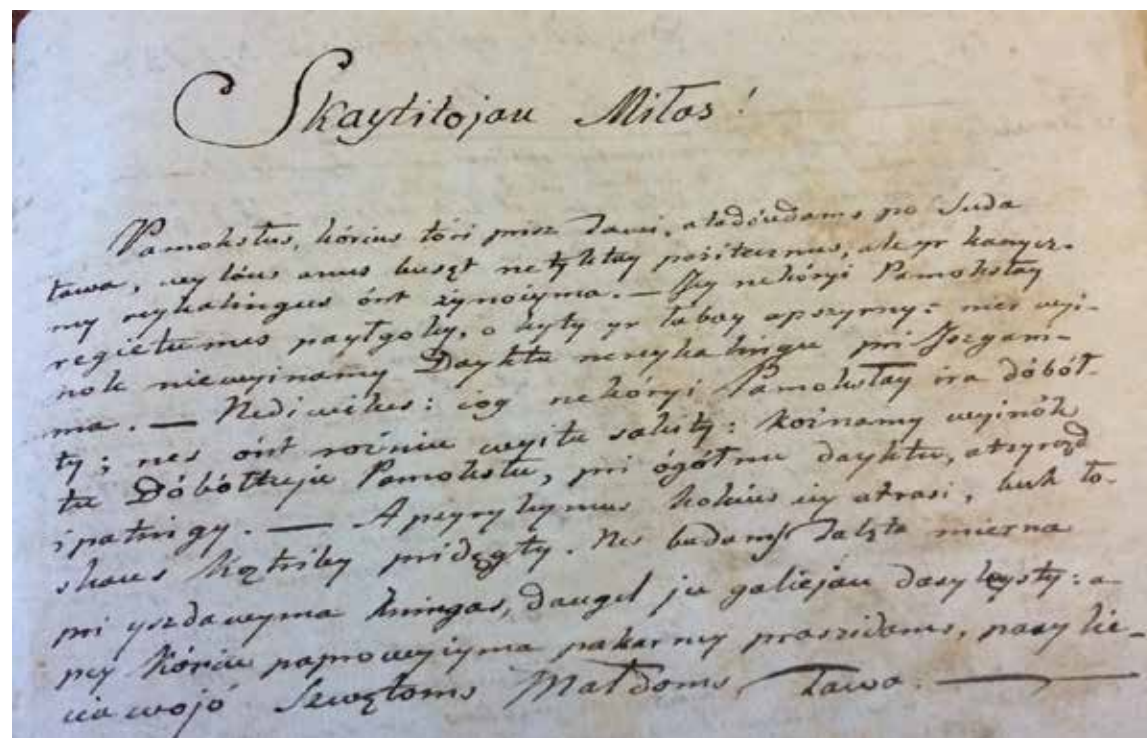 Skaytitojau Miłas!
Pamokslus, kórius tóri prisz Tawi, atadóudams po Suda
tawa, wylóus anus busęt netyktay pożitecznus, ale yr kanycz-
ny reykalingus ónt żynoiyma. — Jy nekóryi Pamokslay
regietumes payłgoky, o kyty yr łabay apszyrny: nes wyi-
nok niewyinamy Dayktu nereykalingu pri Iszgani-
ma. — Nediwikes: iog nekóryi Pamokslay ira dóbół-
ty; nes ónt rożniu wyitu sakity: kożnamy wyinók
tu Dóbółtuju Pamokslu, pri ógółnu dayktu, atsyrąd
ipatnigy. — Apsyrykymus kokius iy atrasi, buk ło-
skaus Kątriby pridęgty. Nes budams Talęta mierna
pri yszdawyma kningas, daugel ju galiejau dasyleysty: a-
pey kóriu paprowyiyma pakarney praszidams, pasylie-
wawojó Szwętoms Małdoms Tawa. —